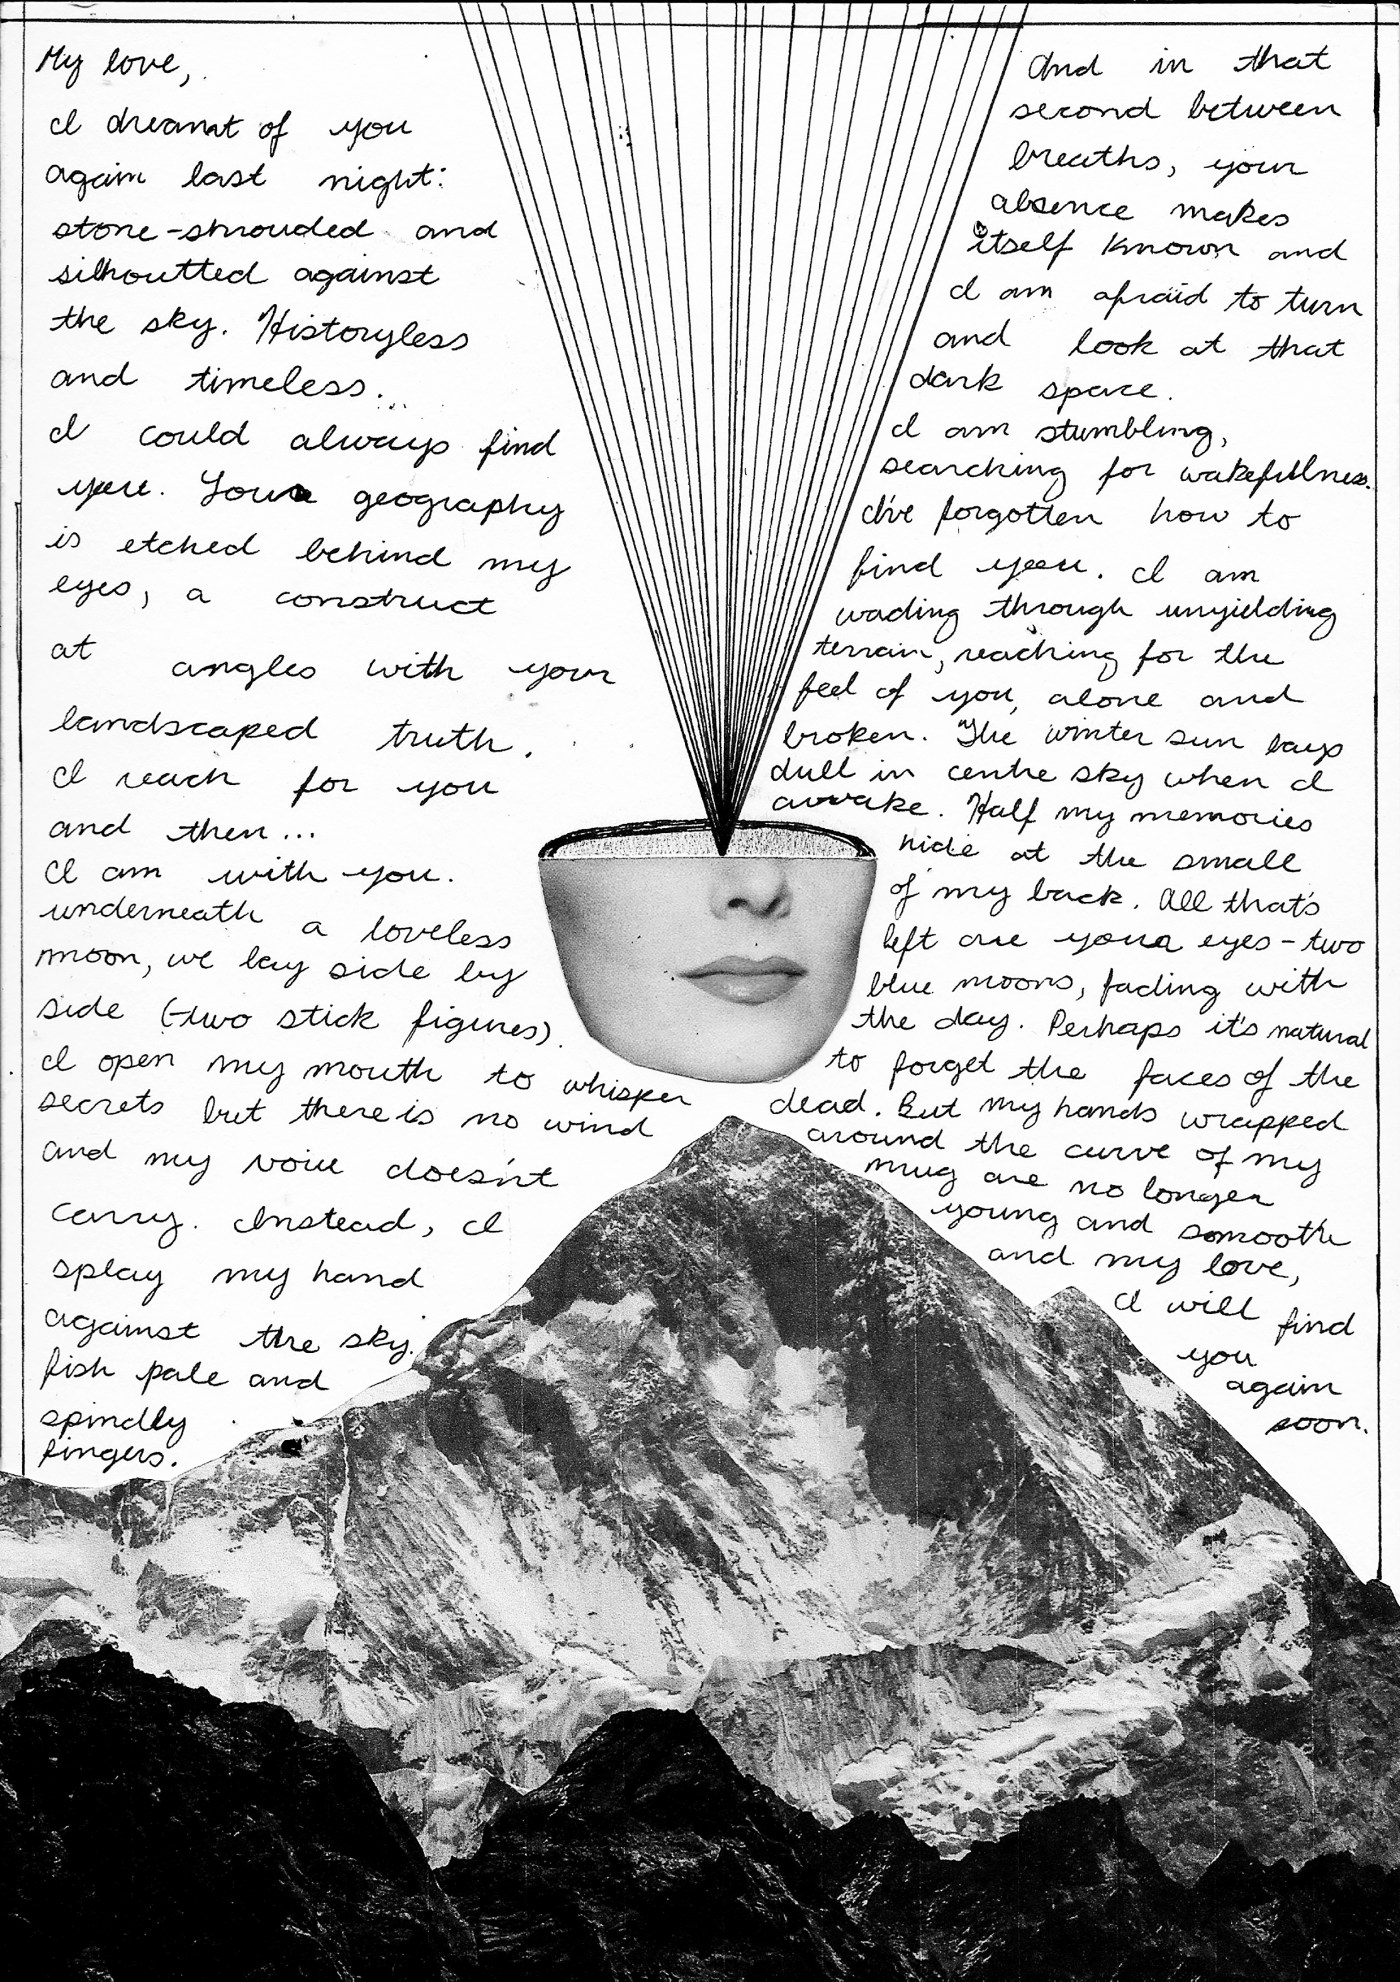 My love,
I dreamt of you
again last night:
stone-shrouded and
silhoutted against
the sky. Historyless
and timeless.
I could always find
you. Your geography
is etched behind my
eyes, a construct
at angles with your
landscaped truth.
I reach for you
and then...
I am with you.
underneath a loveless
moon, we lay side by
side (two stick figures)
I open my mouth to whisper
secrets but there is no wind
and my voice doesn't
carry. Instead, I
splay my hand
against the sky.
fish pale and
spindly
fingers.
And in that
second between
breaths, your
absence makes
itself known and
I am afraid to turn
and look at that
dark space.
I am stumbling,
searching for wakefullness.
I've forgotten how to
find you. I am
wading through unyielding
terrain, reaching for the
feel of you, alone and
broken. The winter sun lays
dull in centre sky when I
awake. Half my memories
hide at the small
of my back. All that's
left are your eyes - two
blue moons, fading with
the day. Perhaps it's natural
to forget the faces of the
dead. But my hands wrapped
around the curve of my
mug are no longer
young and smooth
and my love,
I will find
you
again
soon.